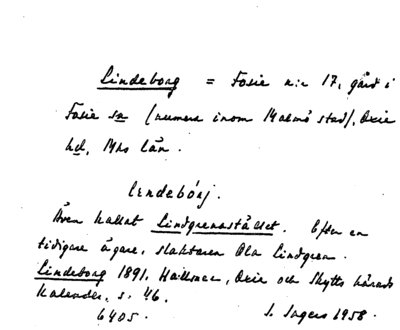 Lindeborg = Fosie n:r 17, gård i
Fosie sn (numera inom Malmö stad), Oxie
hd, Mhs län.
lindebórj.
Även kallat Lindgrensstället. Efter en
tidigare ägare, slaktaren Ola Lindgren.
Lindeborg 1891. Oxie och Skytts härads
Kalender, s. 46.
6405. S. Ingers 1958.